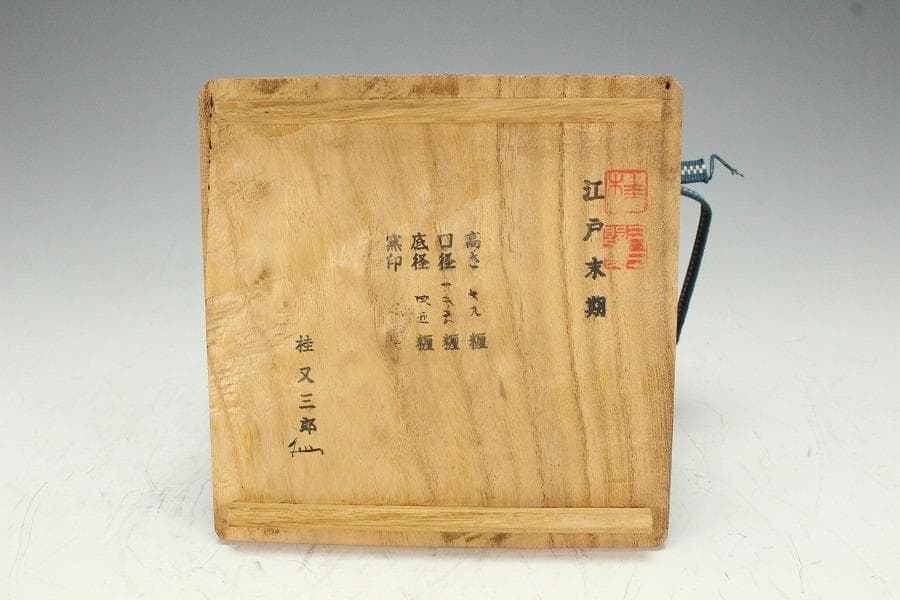 江戸末期
高さ 七九 糎
口径 一六五 糎
底径 四五 糎
窯印
桂又三郎